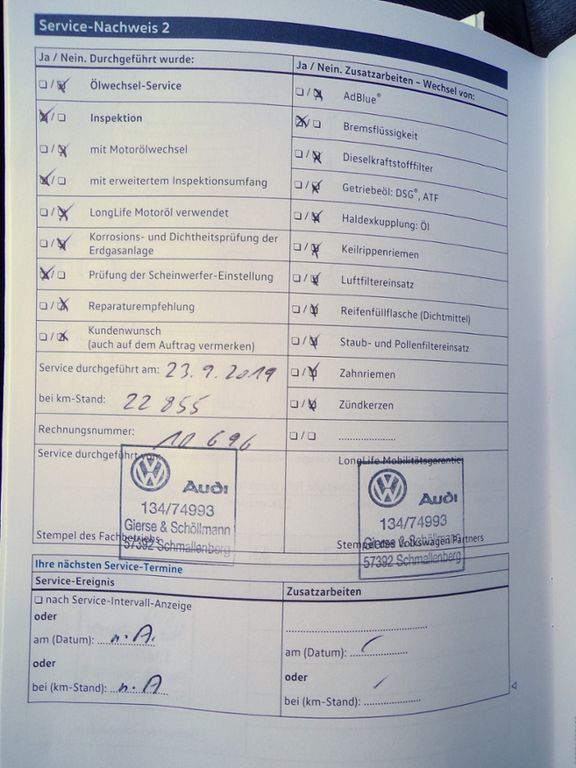 Service-Nachweis 2
Ja / Nein. Durchgeführt wurde:
Ölwechsel-Service
Inspektion
mit Motorölwechsel
mit erweitertem Inspektionsumfang
LongLife Motoröl verwendet
Korrosions- und Dichtheitsprüfung der
Erdgasanlage
Prüfung der Scheinwerfer-Einstellung
Reparaturempfehlung
Kundenwunsch
(auch auf dem Auftrag vermerken)
Service durchgeführt am: 23.9.2019
bei km-Stand: 22 855
Rechnungsnummer: 10 696
Service durchgeführt von:
Audi
134/74993
Gierse & Schöllmann
57392 Schmallenberg
Stempel des Fachbetriebs
Ja / Nein. Zusatzarbeiten – Wechsel von:
AdBlue®
Bremsflüssigkeit
Dieselkraftstofffilter
Getriebeöl: DSG®, ATF
Haldexkupplung: Öl
Keilrippenriemen
Luftfiltereinsatz
Reifenfüllflasche (Dichtmittel)
Staub- und Pollenfiltereinsatz
Zahnriemen
Zündkerzen
LongLife Mobilitätsgarantie:
Audi
134/74993
Gierse & Schöllmann
57392 Schmallenberg
Stempel des Volkswagen Partners
Ihre nächsten Service-Termine
Service-Ereignis
nach Service-Intervall-Anzeige
oder
am (Datum): n.A.
oder
bei (km-Stand): n.A
Zusatzarbeiten
am (Datum):
oder
bei (km-Stand):